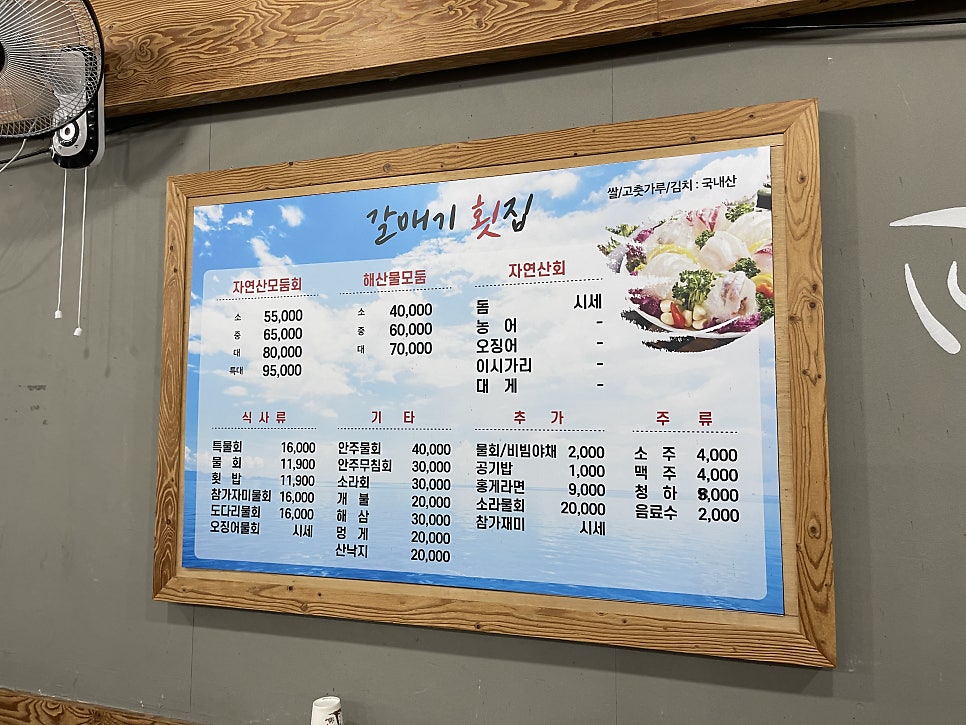 쌀/고춧가루/김치 : 국내산
갈매기 횟집
자연산모둠회
소 55,000
중 65,000
대 80,000
특대 95,000
해산물모둠
소 40,000
중 60,000
대 70,000
자연산회
돔 시세
농 어 -
오징어 -
이시가리 -
대 게 -
식 사 류
특물회 16,000
물 회 11,900
횟 밥 11,900
참가자미물회 16,000
도다리물회 16,000
오징어물회 시세
기 타
안주물회 40,000
안주무침회 30,000
소라회 30,000
개 불 20,000
해 삼 30,000
멍 게 20,000
산낙지 20,000
추 가
물회/비빔야채 2,000
공기밥 1,000
홍게라면 9,000
소라물회 20,000
참가재미 시세
주 류
소 주 4,000
맥 주 4,000
청 하 ,000
음료수 2,000